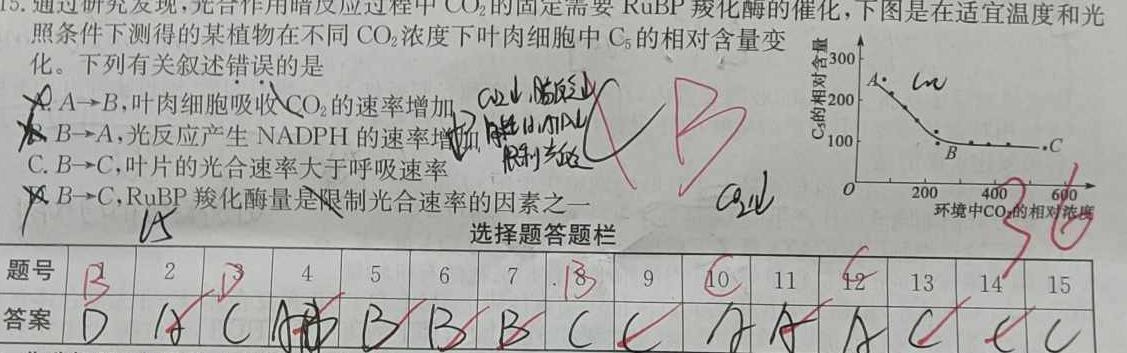 15.通过研究发现,光合作用暗反应过程中 CO₂的固定需要 RuBP 羧化酶的催化,下图是在适宜温度和光
照条件下测得的某植物在不同 CO₂浓度下叶肉细胞中 C₅的相对含量变
化。下列有关叙述错误的是
A. A→B,叶肉细胞吸收 CO₂的速率增加
B. B→A,光反应产生 NADPH 的速率增加
C. B→C,叶片的光合速率大于呼吸速率
D. B→C,RuBP 羧化酶量是限制光合速率的因素之一
CO₂↓
C
B
CO₂↓
C₅的相对含量
300
200
100
0
A
B
C
200 400 600
环境中CO₂的相对浓度
36
选择题答题栏
题号 1 2 3 4 5 6 7 8 9 10 11 12 13 14 15
B D B C C
答案 D A C B B B C C A A A C C C